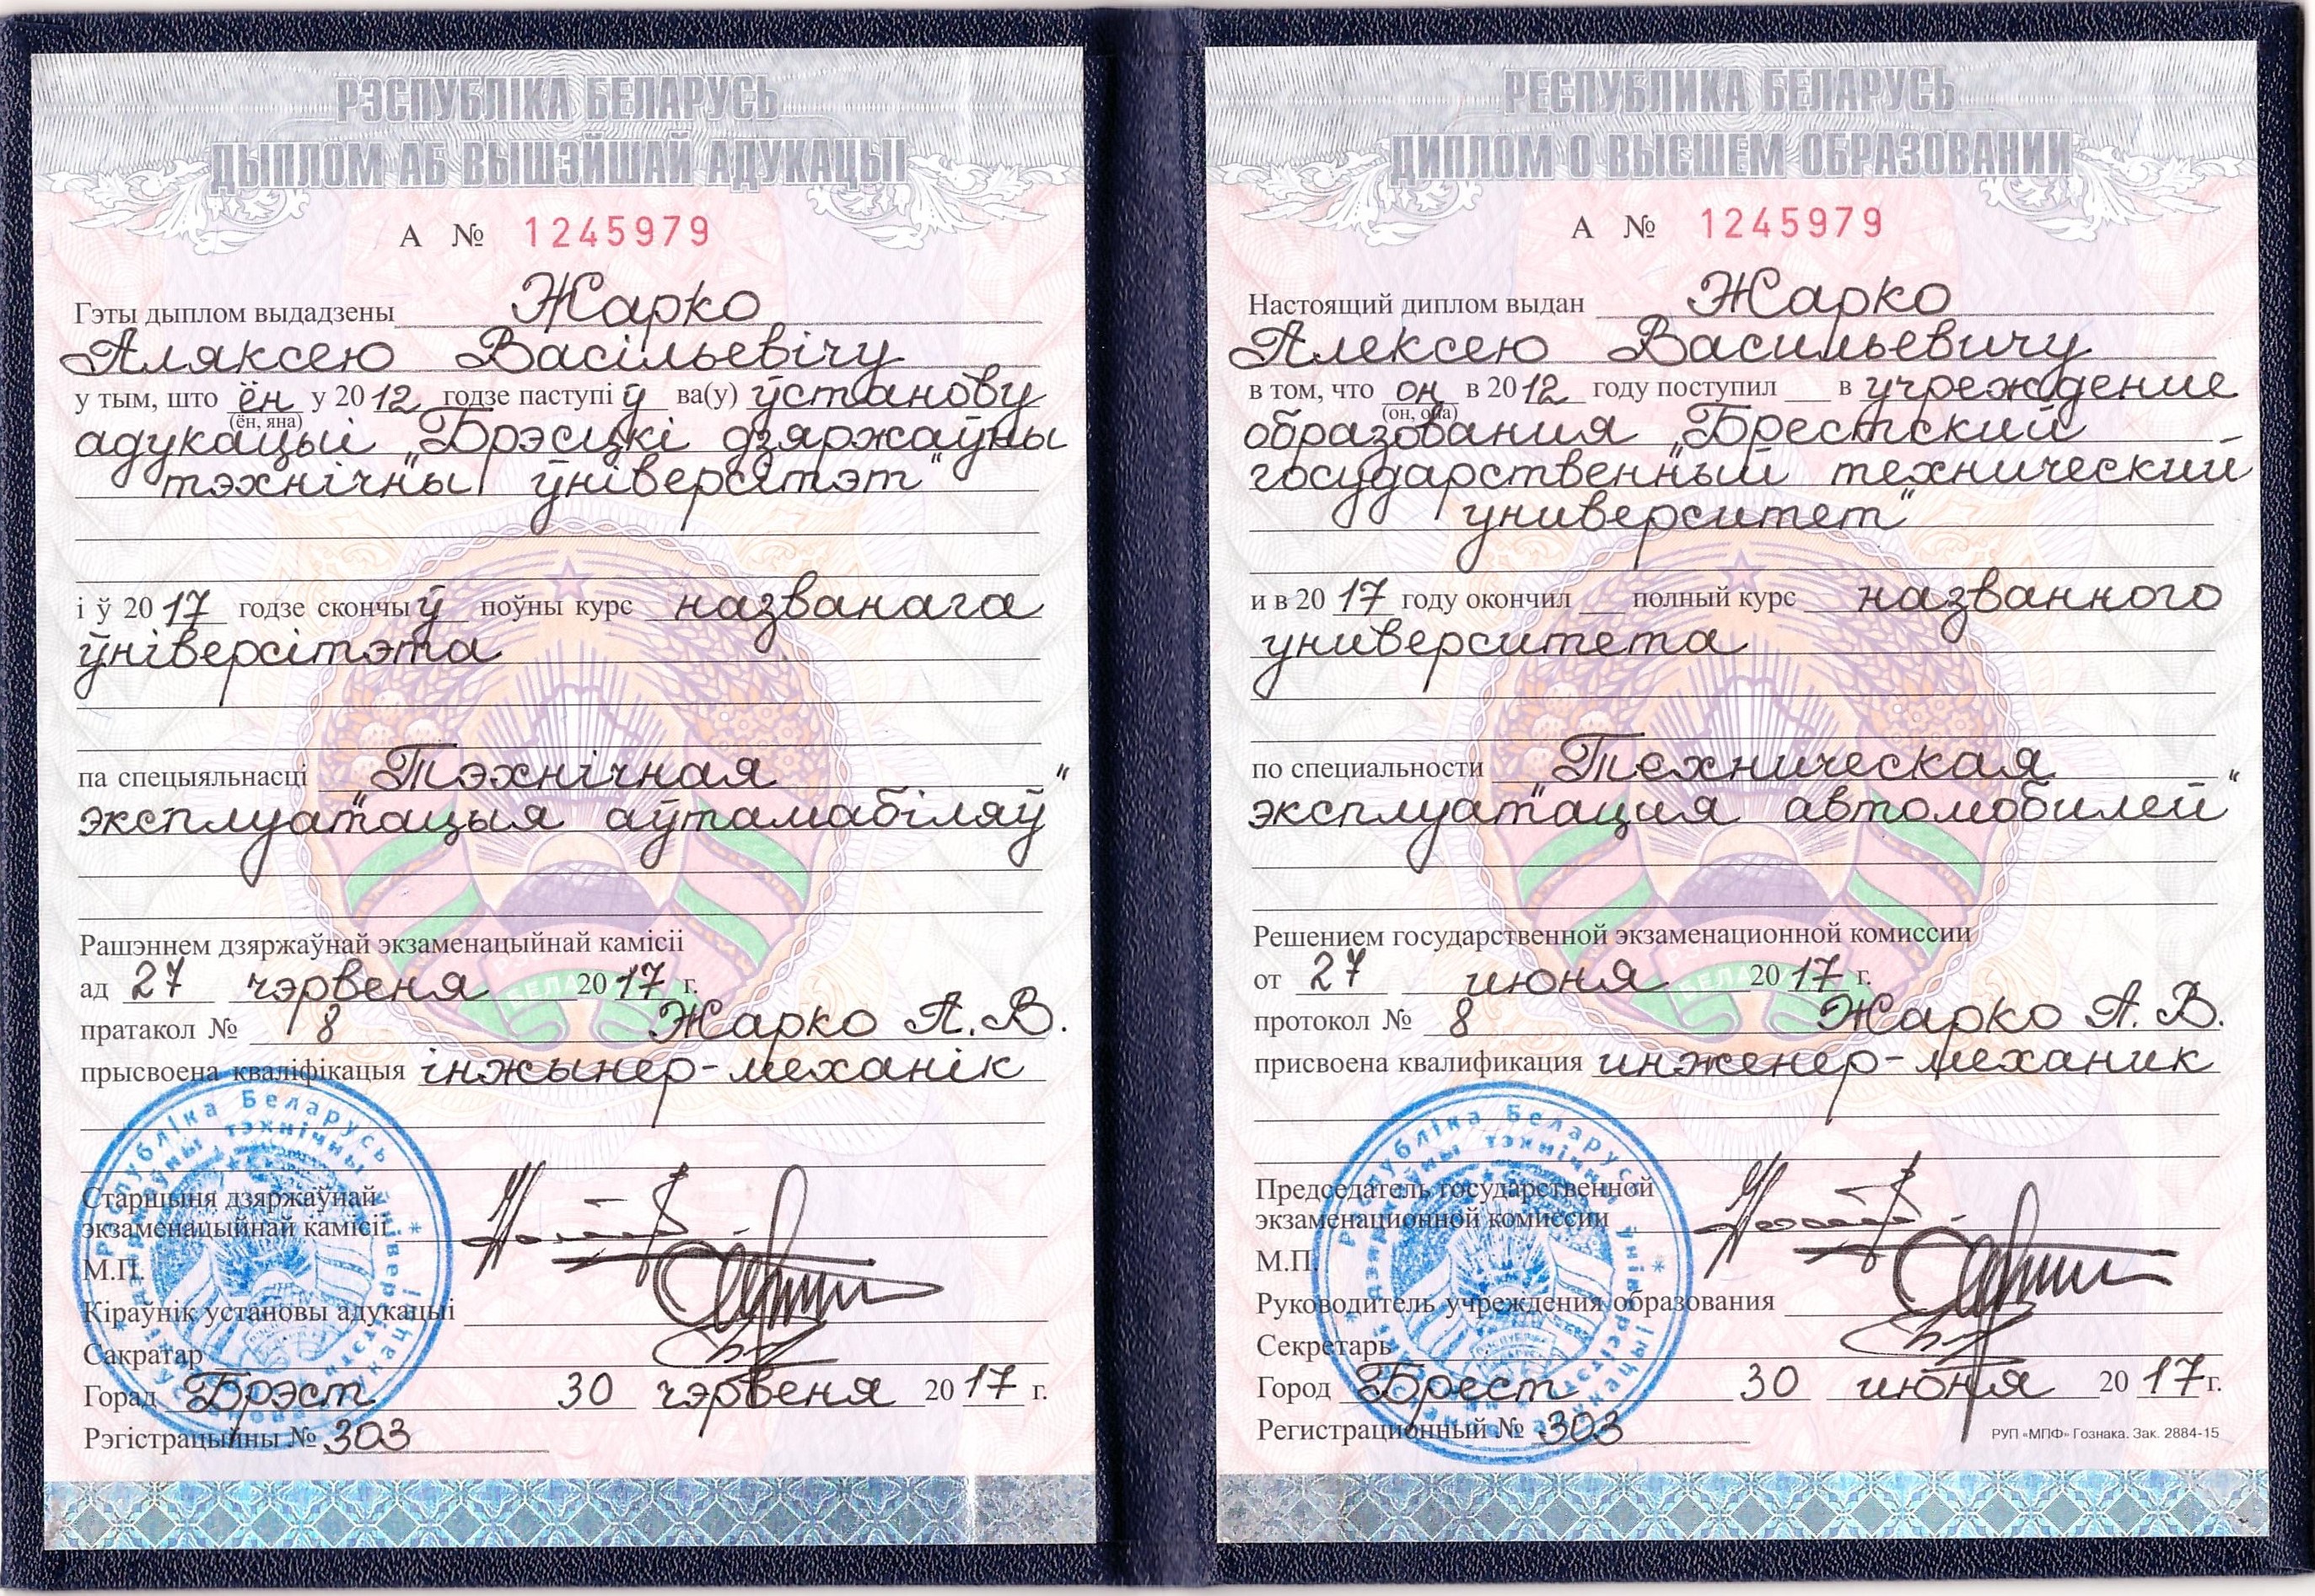 РЭСПУБЛІКА БЕЛАРУСЬ
ДЫПЛОМ АБ ВЫШЭЙШАЙ АДУКАЦЫІ
А № 1245979
Гэты дыплом выдадзены Жарко
Аляксею Васільевічу
у тым, што ён у 2012 годзе паступіў ва(у) ўстанову
(ён, яна)
адукацыі „Брэсцкі дзяржаўны
тэхнічны ўніверсітэт“
і ў 2017 годзе скончыў поўны курс названага
ўніверсітэта
па спецыяльнасці „Тэхнічная
эксплуатацыя аўтамабіляў“
Рашэннем дзяржаўнай экзаменацыйнай камісіі
ад 27 чэрвеня 2017 г.
пратакол № 8 Жарко А.В.
прысвоена кваліфікацыя інжынер-механік
Старшыня дзяржаўнай
экзаменацыйнай камісіі
М.П.
Кіраўнік установы адукацыі
Сакратар
Горад Брэст 30 чэрвеня 2017 г.
Рэгістрацыйны № 303
Рэспубліка Беларусь
дзяржаўны тэхнічны ўніверсітэт
РЕСПУБЛИКА БЕЛАРУСЬ
ДИПЛОМ О ВЫСШЕМ ОБРАЗОВАНИИ
А № 1245979
Настоящий диплом выдан Жарко
Алексею Васильевичу
в том, что он в 2012 году поступил в учреждение
(он, она)
образования „Брестский
государственный технический
университет“
и в 2017 году окончил полный курс названного
университета
по специальности „Техническая
эксплуатация автомобилей“
Решением государственной экзаменационной комиссии
от 27 июня 2017 г.
протокол № 8 Жарко А.В.
присвоена квалификация инженер-механик
Председатель государственной
экзаменационной комиссии
М.П.
Руководитель учреждения образования
Секретарь
Город Брест 30 июня 2017 г.
Регистрационный № 303
РУП «МПФ» Гознака. Зак. 2884-15
Рэспубліка Беларусь
дзяржаўны тэхнічны ўніверсітэт